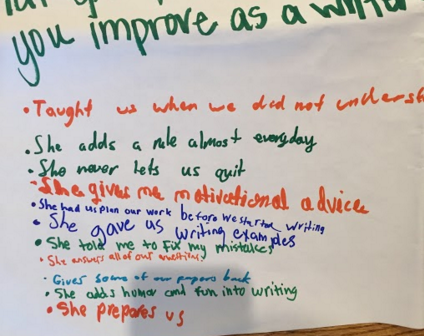 you improve as a writer
• Taught us when we did not underst
• She adds a rule almost everyday
• She never lets us quit
• She gives me motivational advice
• She had us plan our work before we started writing
• She gave us writing examples
• She told me to fix my mistakes
• She answers all of our questions.
• Gives some of our papers back
• She adds humor and fun into writing
• She prepares us